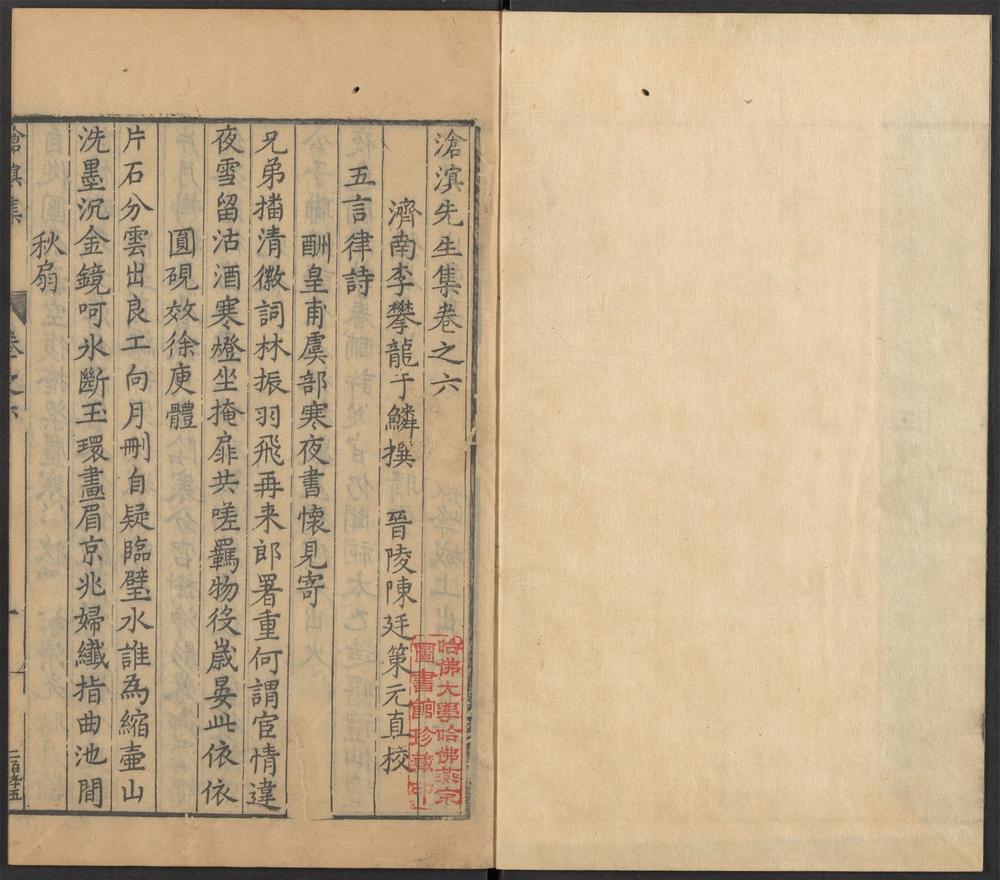 滄溟先生集卷之六
濟南李攀龍于鱗撰 晉陵陳廷策元直校
五言律詩
酬皇甫虞部寒夜書懷見寄
兄弟擂清徽詞林振羽飛再来郎署重何謂宦情違
夜雪留沽酒寒燈坐掩扉共嗟羈物役歲晏此依依
圓硯效徐庾體
片石分雲出良工向月刪自疑臨璧水誰為縮壷山
洗墨沉金鏡呵氷斷玉環畫眉京兆婦纖指曲池間
秋扇
滄溟集 卷之六 一 二百九十五
哈佛大學哈佛燕京
圖書館珍藏印